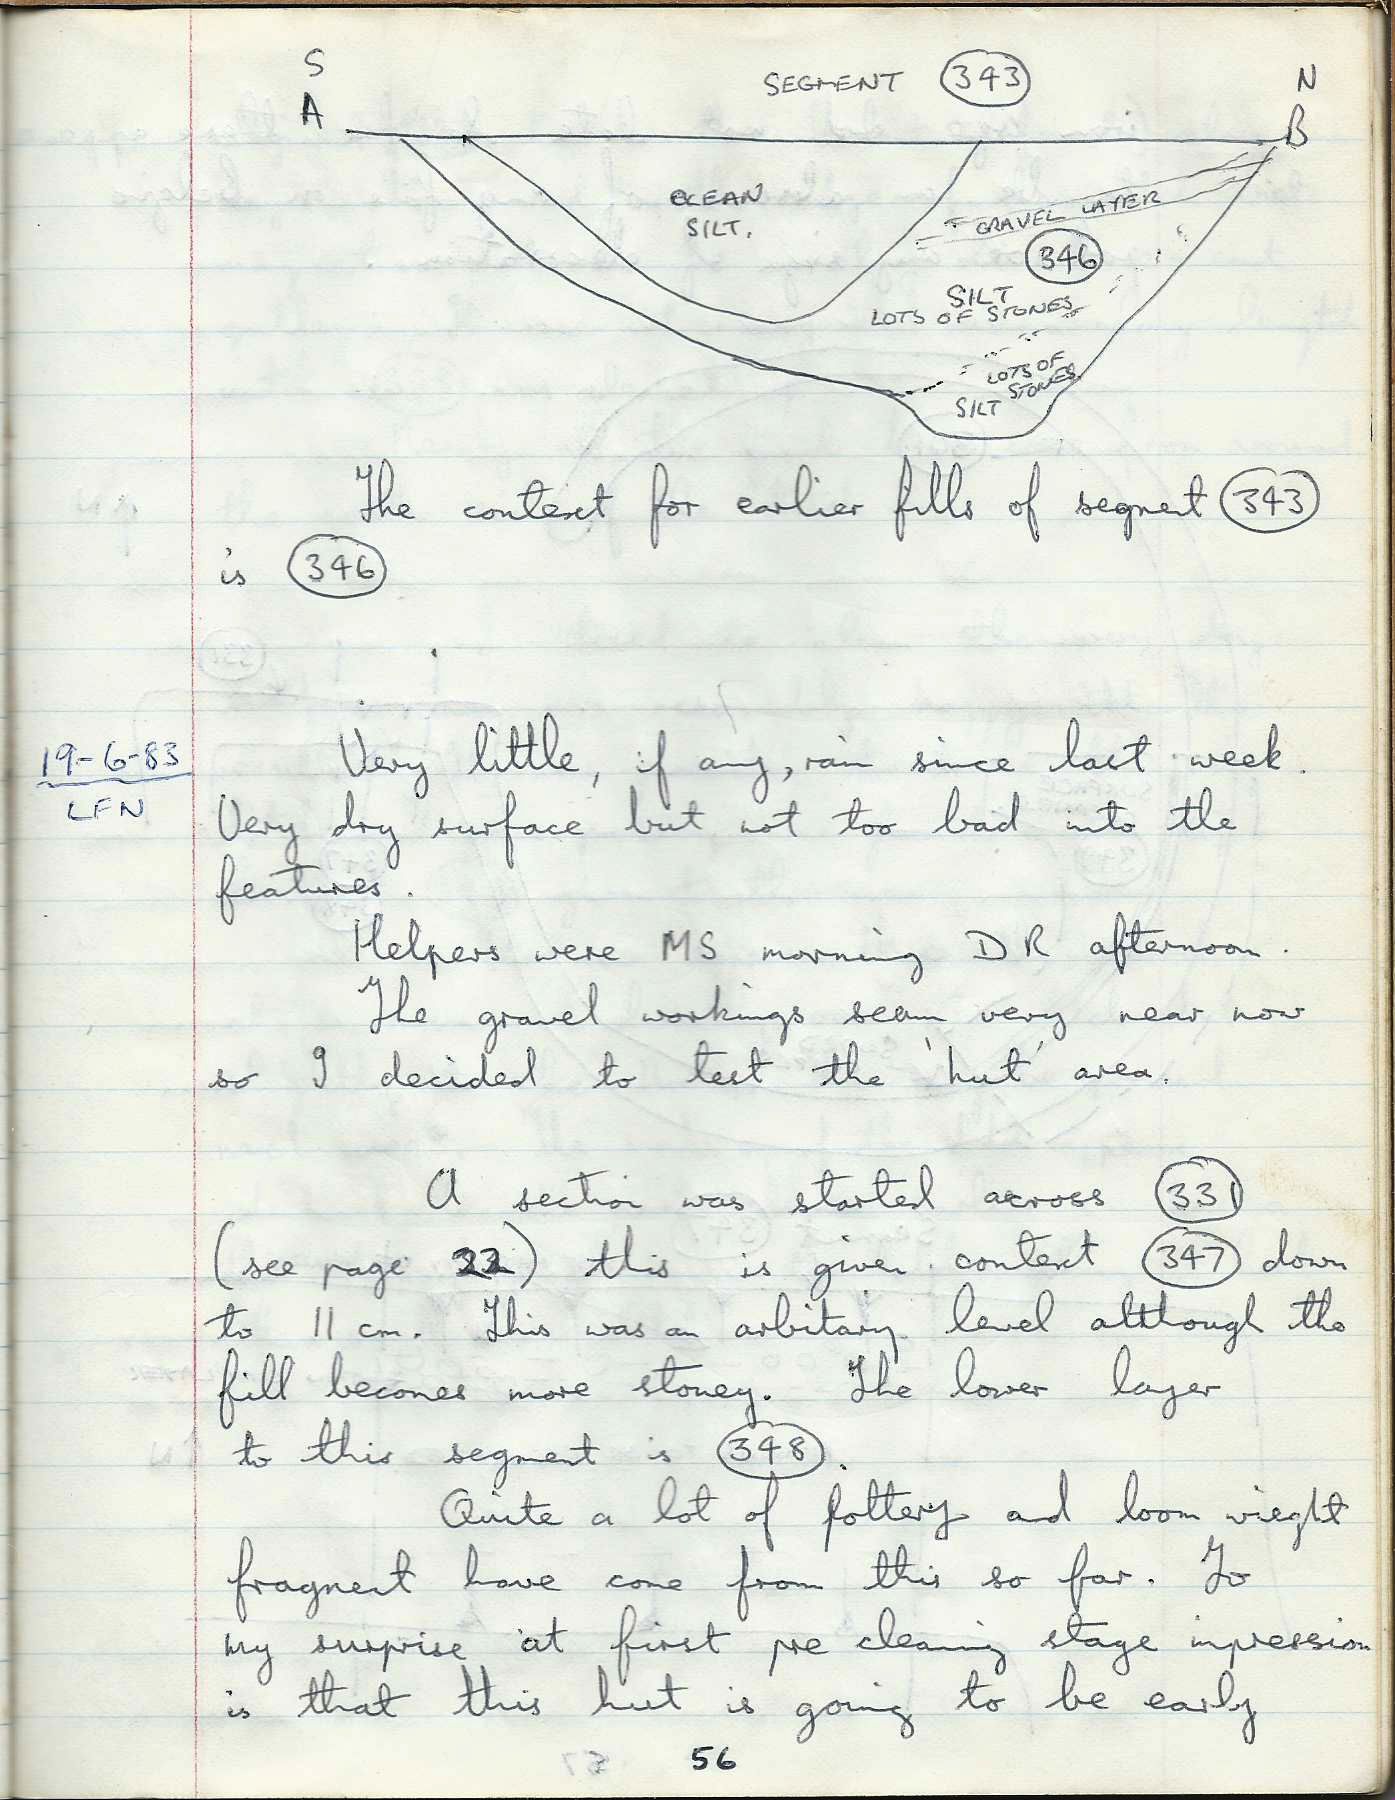 S
A
SEGMENT 343
N
B
CLEAN
SILT.
GRAVEL LAYER
346
SILT
LOTS OF STONES
LOTS OF
STONES
SILT
The context for earlier fills of segment 343
is 346
19-6-83
LFN
Very little, if any, rain since last week.
Very dry surface but not too bad into the
features.
Helpers were MS morning DR afternoon.
The gravel workings seam very near now
so I decided to test the 'hut' area.
A section was started across 331
(see page 22) this is given context 347 down
to 11 cm. This was an arbitary level although the
fill becomes more stoney. The lower layer
to this segment is 348.
Quite a lot of pottery and loom wieght
fragment have come from this so far. To
my surprise at first pre cleaning stage impression
is that this hut is going to be early
56